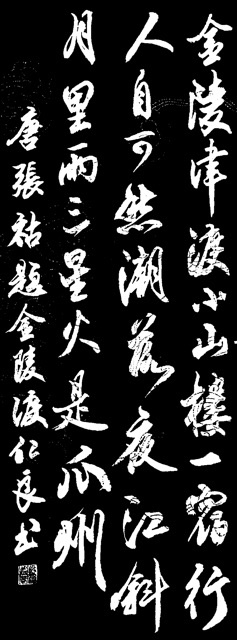 金陵津渡小山樓一宿行
人自可愁潮落夜江斜
月里兩三星火是瓜州
唐張祜題金陵渡仁良书